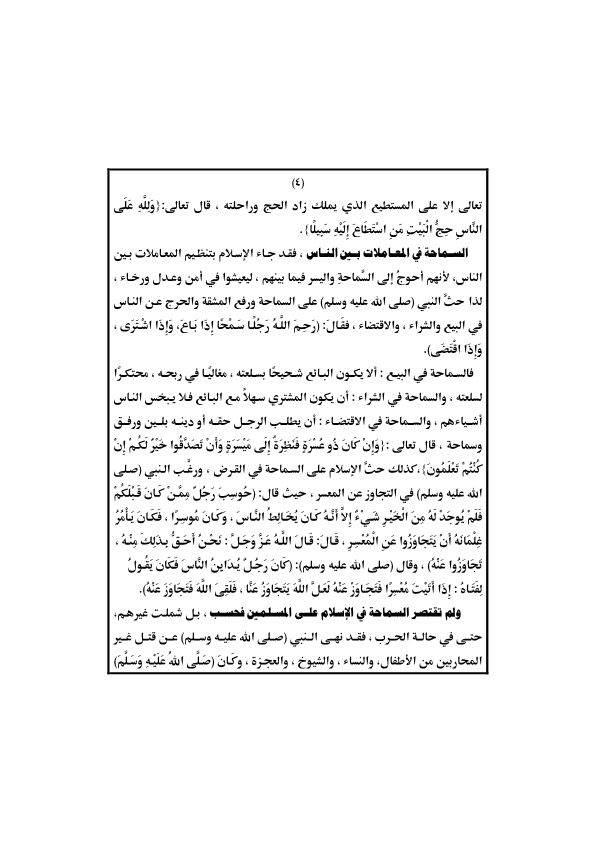 (٤)
تعالى إلا على المستطيع الذي يملك زاد الحج وراحلته ، قال تعالى:{وَلِلَّهِ عَلَى
النَّاسِ حِجُّ الْبَيْتِ مَنِ اسْتَطَاعَ إِلَيْهِ سَبِيلًا}.
السماحة في المعاملات بين الناس ، فقد جاء الإسلام بتنظيم المعاملات بين
الناس، لأنهم أحوجُ إلى السَّماحةِ واليسر فيما بينهم ، ليعيشوا في أمن وعدل ورخاء ،
لذا حثَّ النبي (صلى الله عليه وسلم) على السماحة ورفع المشقة والحرج عن الناس
في البيع والشراء ، والاقتضاء ، فقَالَ: (رَحِمَ اللَّهُ رَجُلًا سَمْحًا إِذَا بَاعَ، وَإِذَا اشْتَرَى ،
وَإِذَا اقْتَضَى).
فالسماحة في البيع : ألا يكون البائع شحيحًا بسلعته ، مغاليًا في ربحه ، محتكرًا
لسلعته ، والسماحة في الشراء : أن يكون المشتري سهلاً مع البائع فلا يبخس الناس
أشياءهم ، والسماحة في الاقتضاء : أن يطلب الرجل حقه أو دينه بلين ورفق
وسماحة ، قال تعالى :{وَإِنْ كَانَ ذُو عُسْرَةٍ فَنَظِرَةٌ إِلَى مَيْسَرَةٍ وَأَنْ تَصَدَّقُوا خَيْرٌ لَكُمْ إِنْ
كُنْتُمْ تَعْلَمُونَ}،كذلك حثَّ الإسلام على السماحة في القرض ، ورغَّب النبي (صلى
الله عليه وسلم) في التجاوز عن المعسر ، حيث قال: (حُوسِبَ رَجُلٌ مِمَّنْ كَانَ قَبْلَكُمْ
فَلَمْ يُوجَدْ لَهُ مِنَ الْخَيْرِ شَيْءٌ إِلاَّ أَنَّهُ كَانَ يُخَالِطُ النَّاسَ ، وَكَانَ مُوسِرًا ، فَكَانَ يَأْمُرُ
غِلْمَانَهُ أَنْ يَتَجَاوَزُوا عَنِ الْمُعْسِرِ ، قَالَ: قَالَ اللَّهُ عَزَّ وَجَلَّ : نَحْنُ أَحَقُّ بِذَلِكَ مِنْهُ ،
تَجَاوَزُوا عَنْهُ) ، وقال (صلى الله عليه وسلم): (كَانَ رَجُلٌ يُدَايِنُ النَّاسَ فَكَانَ يَقُولُ
لِفَتَاهُ : إِذَا أَتَيْتَ مُعْسِرًا فَتَجَاوَزْ عَنْهُ لَعَلَّ اللَّهَ يَتَجَاوَزُ عَنَّا ، فَلَقِىَ اللَّهَ فَتَجَاوَزَ عَنْهُ).
ولم تقتصر السماحة في الإسلام على المسلمين فحسب ، بل شملت غيرهم،
حتى في حالة الحرب ، فقد نهى النبي (صلى الله عليه وسلم) عن قتل غير
المحاربين من الأطفال، والنساء ، والشيوخ ، والعجزة ، وكَانَ (صَلَّى اللهُ عَلَيْهِ وَسَلَّمَ)